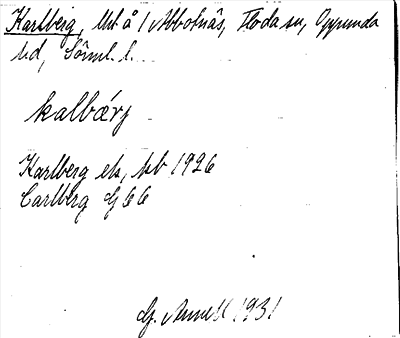 Karlberg, Utå 1 Abbotnäs, Floda sn, Oppunda
hd, Söml. l.
kalbærj
Karlberg els, kb 1926
Carlberg G 66
G. Annell 1931